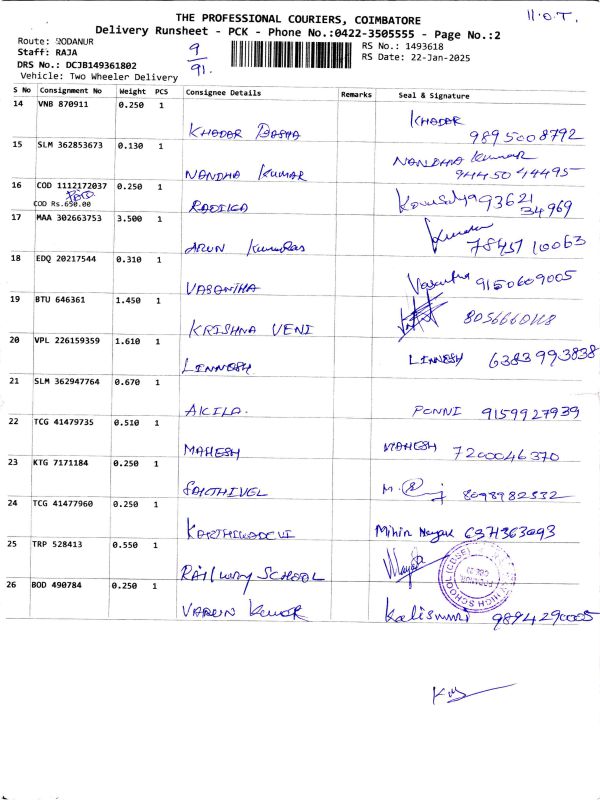 THE PROFESSIONAL COURIERS, COIMBATORE
11.O.T.
Delivery Runsheet - PCK - Phone No.:0422-3505555 - Page No.:2
Route: PODANUR
9
RS No: 1493618
Staff: RAJA
RS Date: 22-Jan-2025
DRS No: DCJB149361802
91.
Vehicle: Two Wheeler Delivery
S No Consignment No Weight PCS Consignee Details Remarks Seal & Signature
14 VNB 870911 0.250 1
KHADAR BASHA KHADAR
9895008792
15 SLM 362853673 0.130 1
NANDHA KUMAR NANDHA KUMAR
9445044495
16 COD 1112172037 0.250 1
COD Rs.650.00
RADIKA 93621
34969
17 MAA 302663753 3.500 1
ARUN 78457 10063
18 EDQ 20217544 0.310 1
VASANTHA Vasantha 9150609005
19 BTU 646361 1.450 1
KRISHNA VENI
20 VPL 226159359 1.610 1
LINNESH LINNESH 6383993838
21 SLM 362947764 0.670 1
AKILA. PONNI 9159927939
22 TCG 41479735 0.510 1
MAHESH MAHESH 7200046370
23 KTG 7171184 0.250 1
SAKTHIVEL M. 8098982532
24 TCG 41477960 0.250 1
KARTHIKADEVI Mihir Nayak 6371363093
25 TRP 528413 0.550 1
RAILWAY SCHOOL
HIGH SCHOOL (CBSE)
26 BOD 490784 0.250 1
VARUN Kumar 9894290005